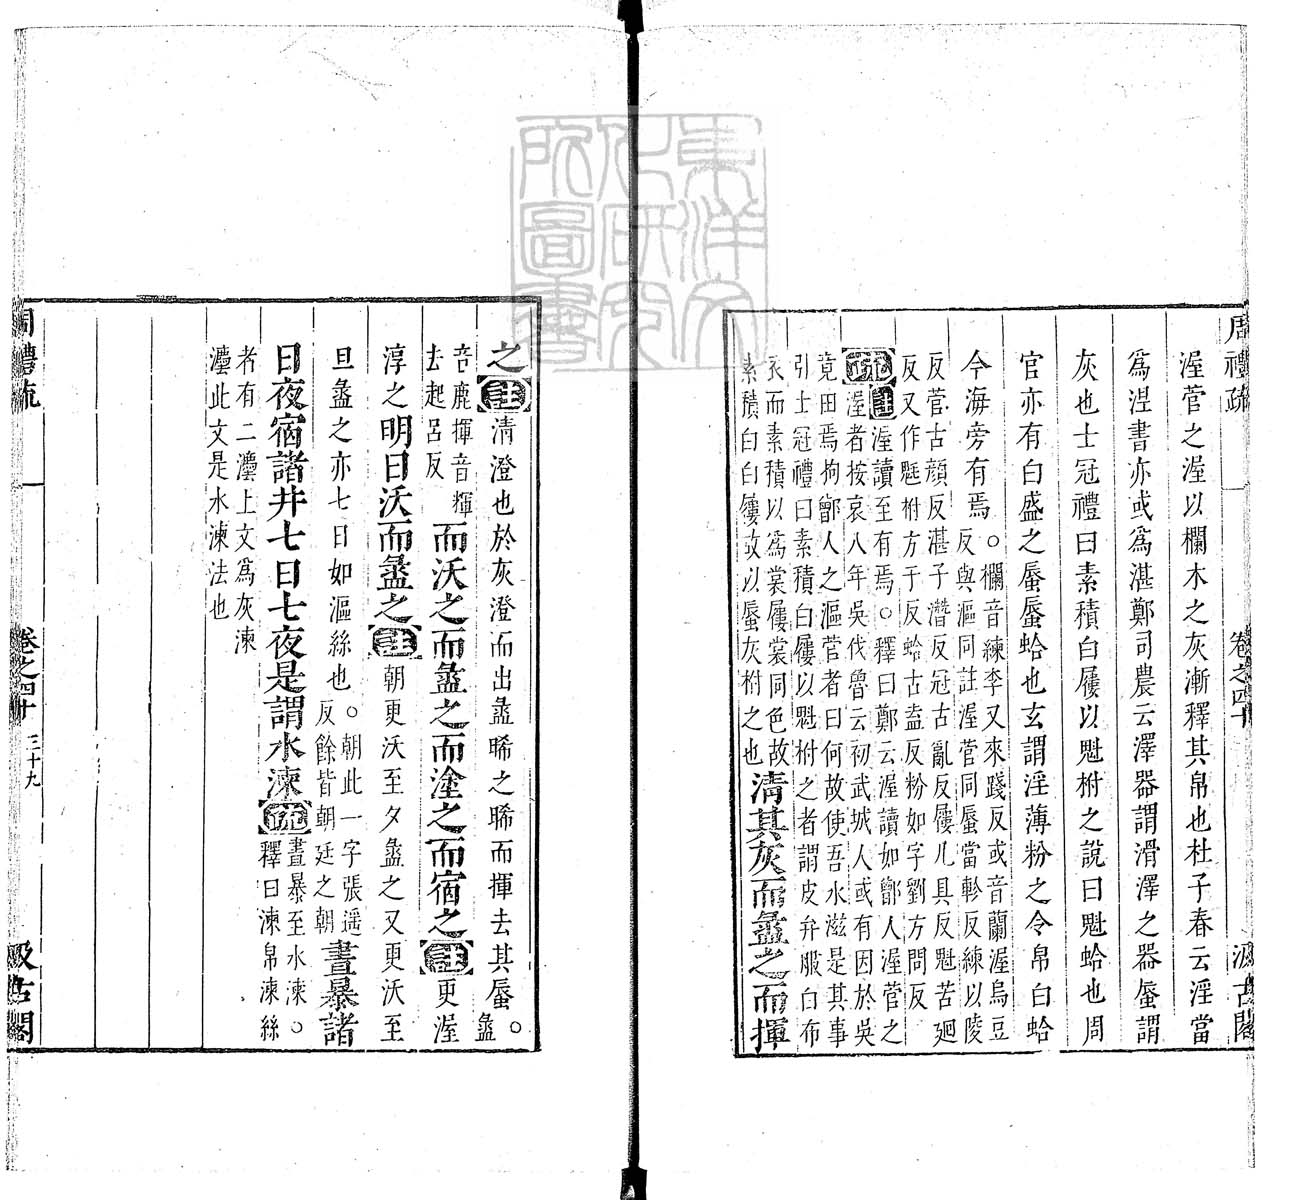 周禮疏 卷之四十 汲古閣
渥菅之渥以欄木之灰漸釋其帛也杜子春云淫當
爲涅書亦或爲湛鄭司農云澤器謂滑澤之器蜃謂
灰也士冠禮曰素積白屨以魁柎之說曰魁蛤也周
官亦有白盛之蜃蜃蛤也玄謂淫薄粉之令帛白蛤
今海旁有焉○欄音練李又來踐反或音蘭渥烏豆
反與漚同註渥菅同蜃當軫反練以陵
反菅古顔反湛子潛反冠古亂反屨九具反魁苦廻
反又作魁柎方于反蛤古盍反粉如字劉方問反
疏註渥讀至有焉○釋曰鄭云渥讀如鄫人渥菅之
渥者按哀八年吳伐魯云初武城人或有因於吳
竟田焉拘鄫人之漚菅者曰何故使吾水滋是其事
引士冠禮曰素積白屨以魁柎之者謂皮弁服白布
衣而素積以爲裳屨裳同色故
素積白白屨故以蜃灰柎之也清其灰而盝之而揮
之註清澄也於灰澄而出盝晞之晞而揮去其蜃○盝
音鹿揮音輝
去起呂反而沃之而盝之而塗之而宿之註更渥
淳之明日沃而盝之註朝更沃至夕盝之又更沃至
旦盝之亦七日如漚絲也○朝此一字張遥
反餘皆朝廷之朝晝暴諸
日夜宿諸井七日七夜是謂水湅疏晝暴至水湅○
釋曰湅帛湅絲
者有二灋上文爲灰湅
灋此文是水湅法也
周禮疏 卷之四十 三十九 汲古閣
東洋文
化研究
所圖書